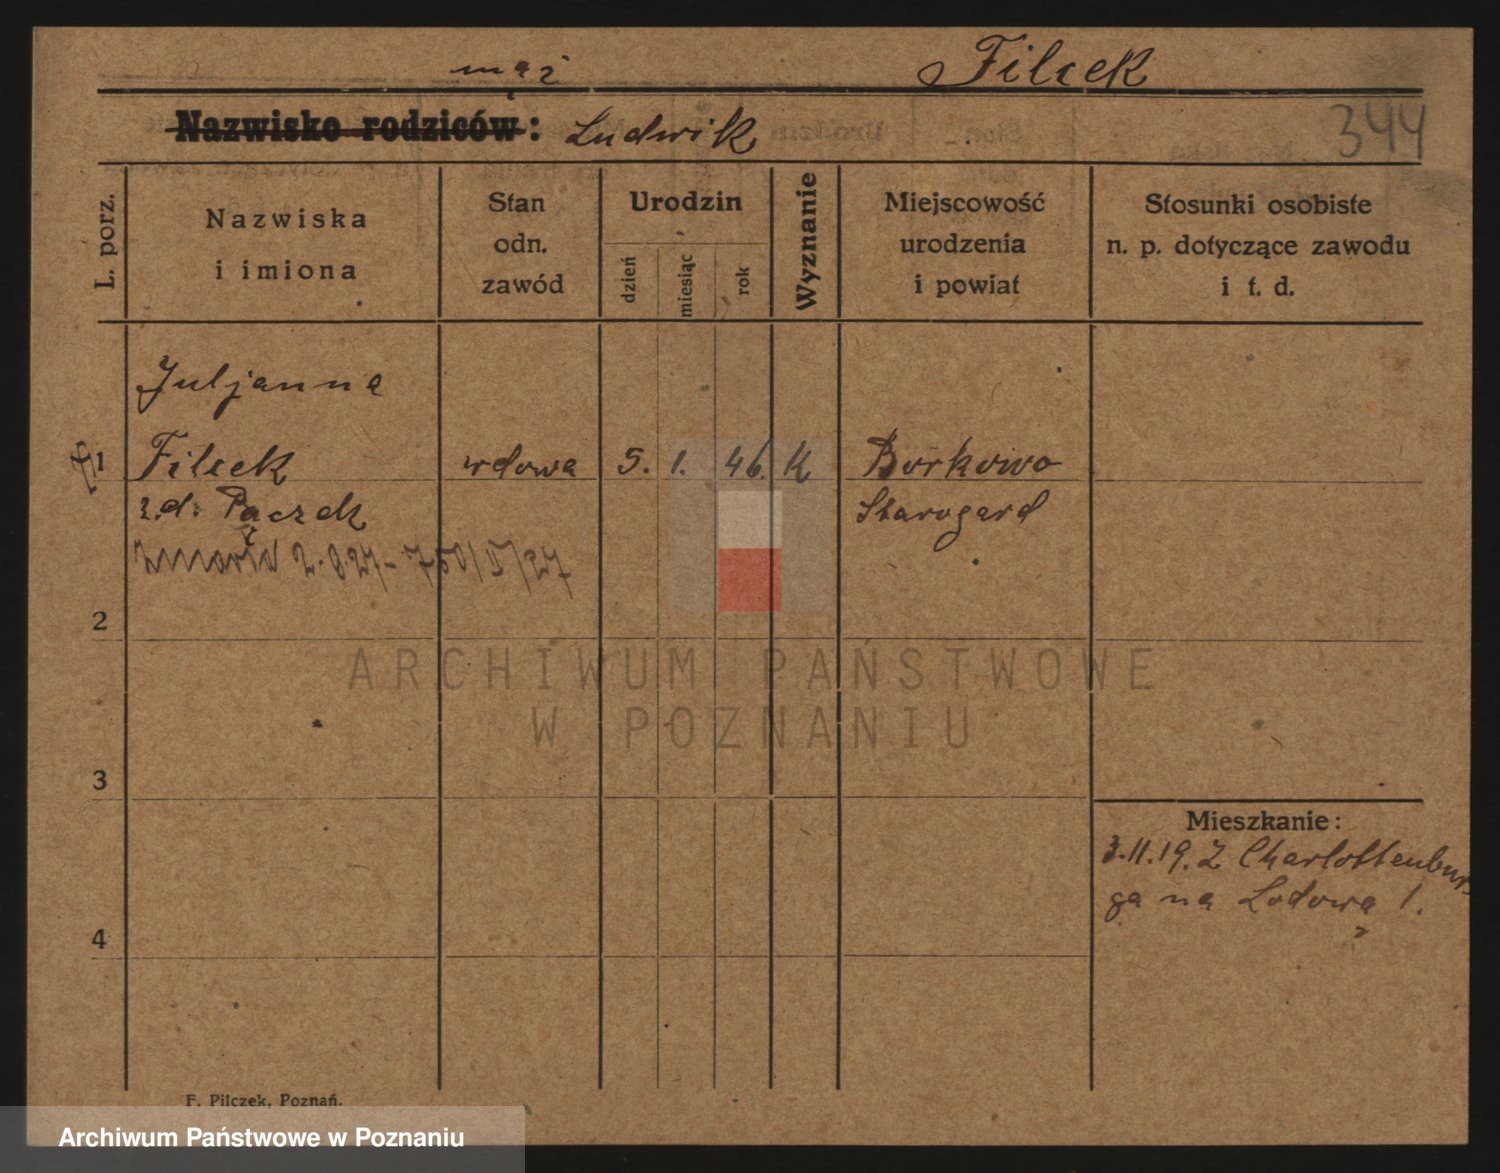 mąż
Filcek
Nazwisko rodziców: Ludwik
344
L. porz.
Nazwiska
i imiona
Stan
odn.
zawód
Urodzin
dzień
miesiąc
rok
Wyznanie
Miejscowość
urodzenia
i powiat
Stosunki osobiste
n. p. dotyczące zawodu
i t. d.
Juljanna
1 Filcek wdowa 5. 1. 46. K Borkowo
z.d. Pączek Starogard
zmarła 2.8.27 - 750/II/27
2
3
4
Mieszkanie:
3.11.19. Z Charlottenbur-
ga na Lodową 1.
F. Pilczek, Poznań.
ARCHIWUM PAŃSTWOWE
W POZNANIU
Archiwum Państwowe w Poznaniu